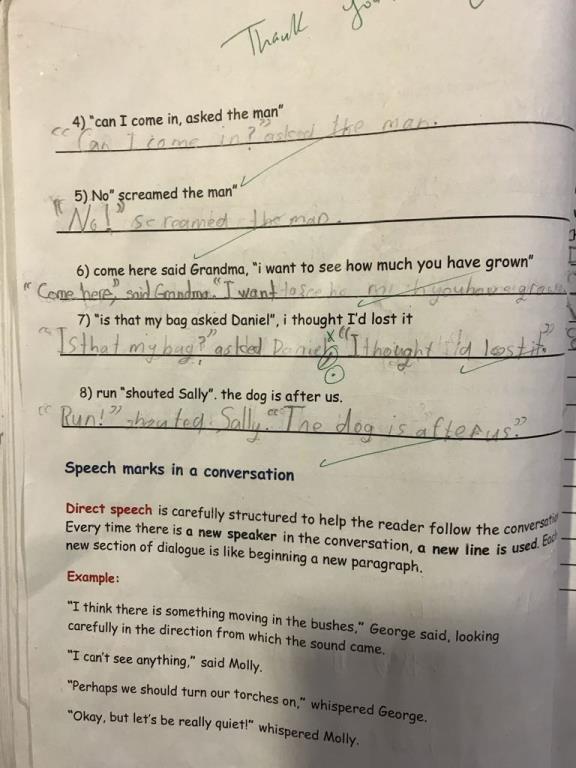 Thank you
4) "can I come in, asked the man"
"Can I come in?" asked the man.
5) No" screamed the man"
"No!" screamed the man.
6) come here said Grandma, "i want to see how much you have grown"
"Come here," said Grandma. "I want to see ho much you have grown
7) "is that my bag asked Daniel", i thought I'd lost it
"Is that my bag?" asked Daniel. "I thought I'd lost it."
8) run "shouted Sally". the dog is after us.
"Run!" shouted Sally. "The dog is after us."
Speech marks in a conversation
Direct speech is carefully structured to help the reader follow the conversatio
Every time there is a new speaker in the conversation, a new line is used. Each
new section of dialogue is like beginning a new paragraph.
Example:
"I think there is something moving in the bushes," George said, looking
carefully in the direction from which the sound came.
"I can't see anything," said Molly.
"Perhaps we should turn our torches on," whispered George.
"Okay, but let's be really quiet!" whispered Molly.